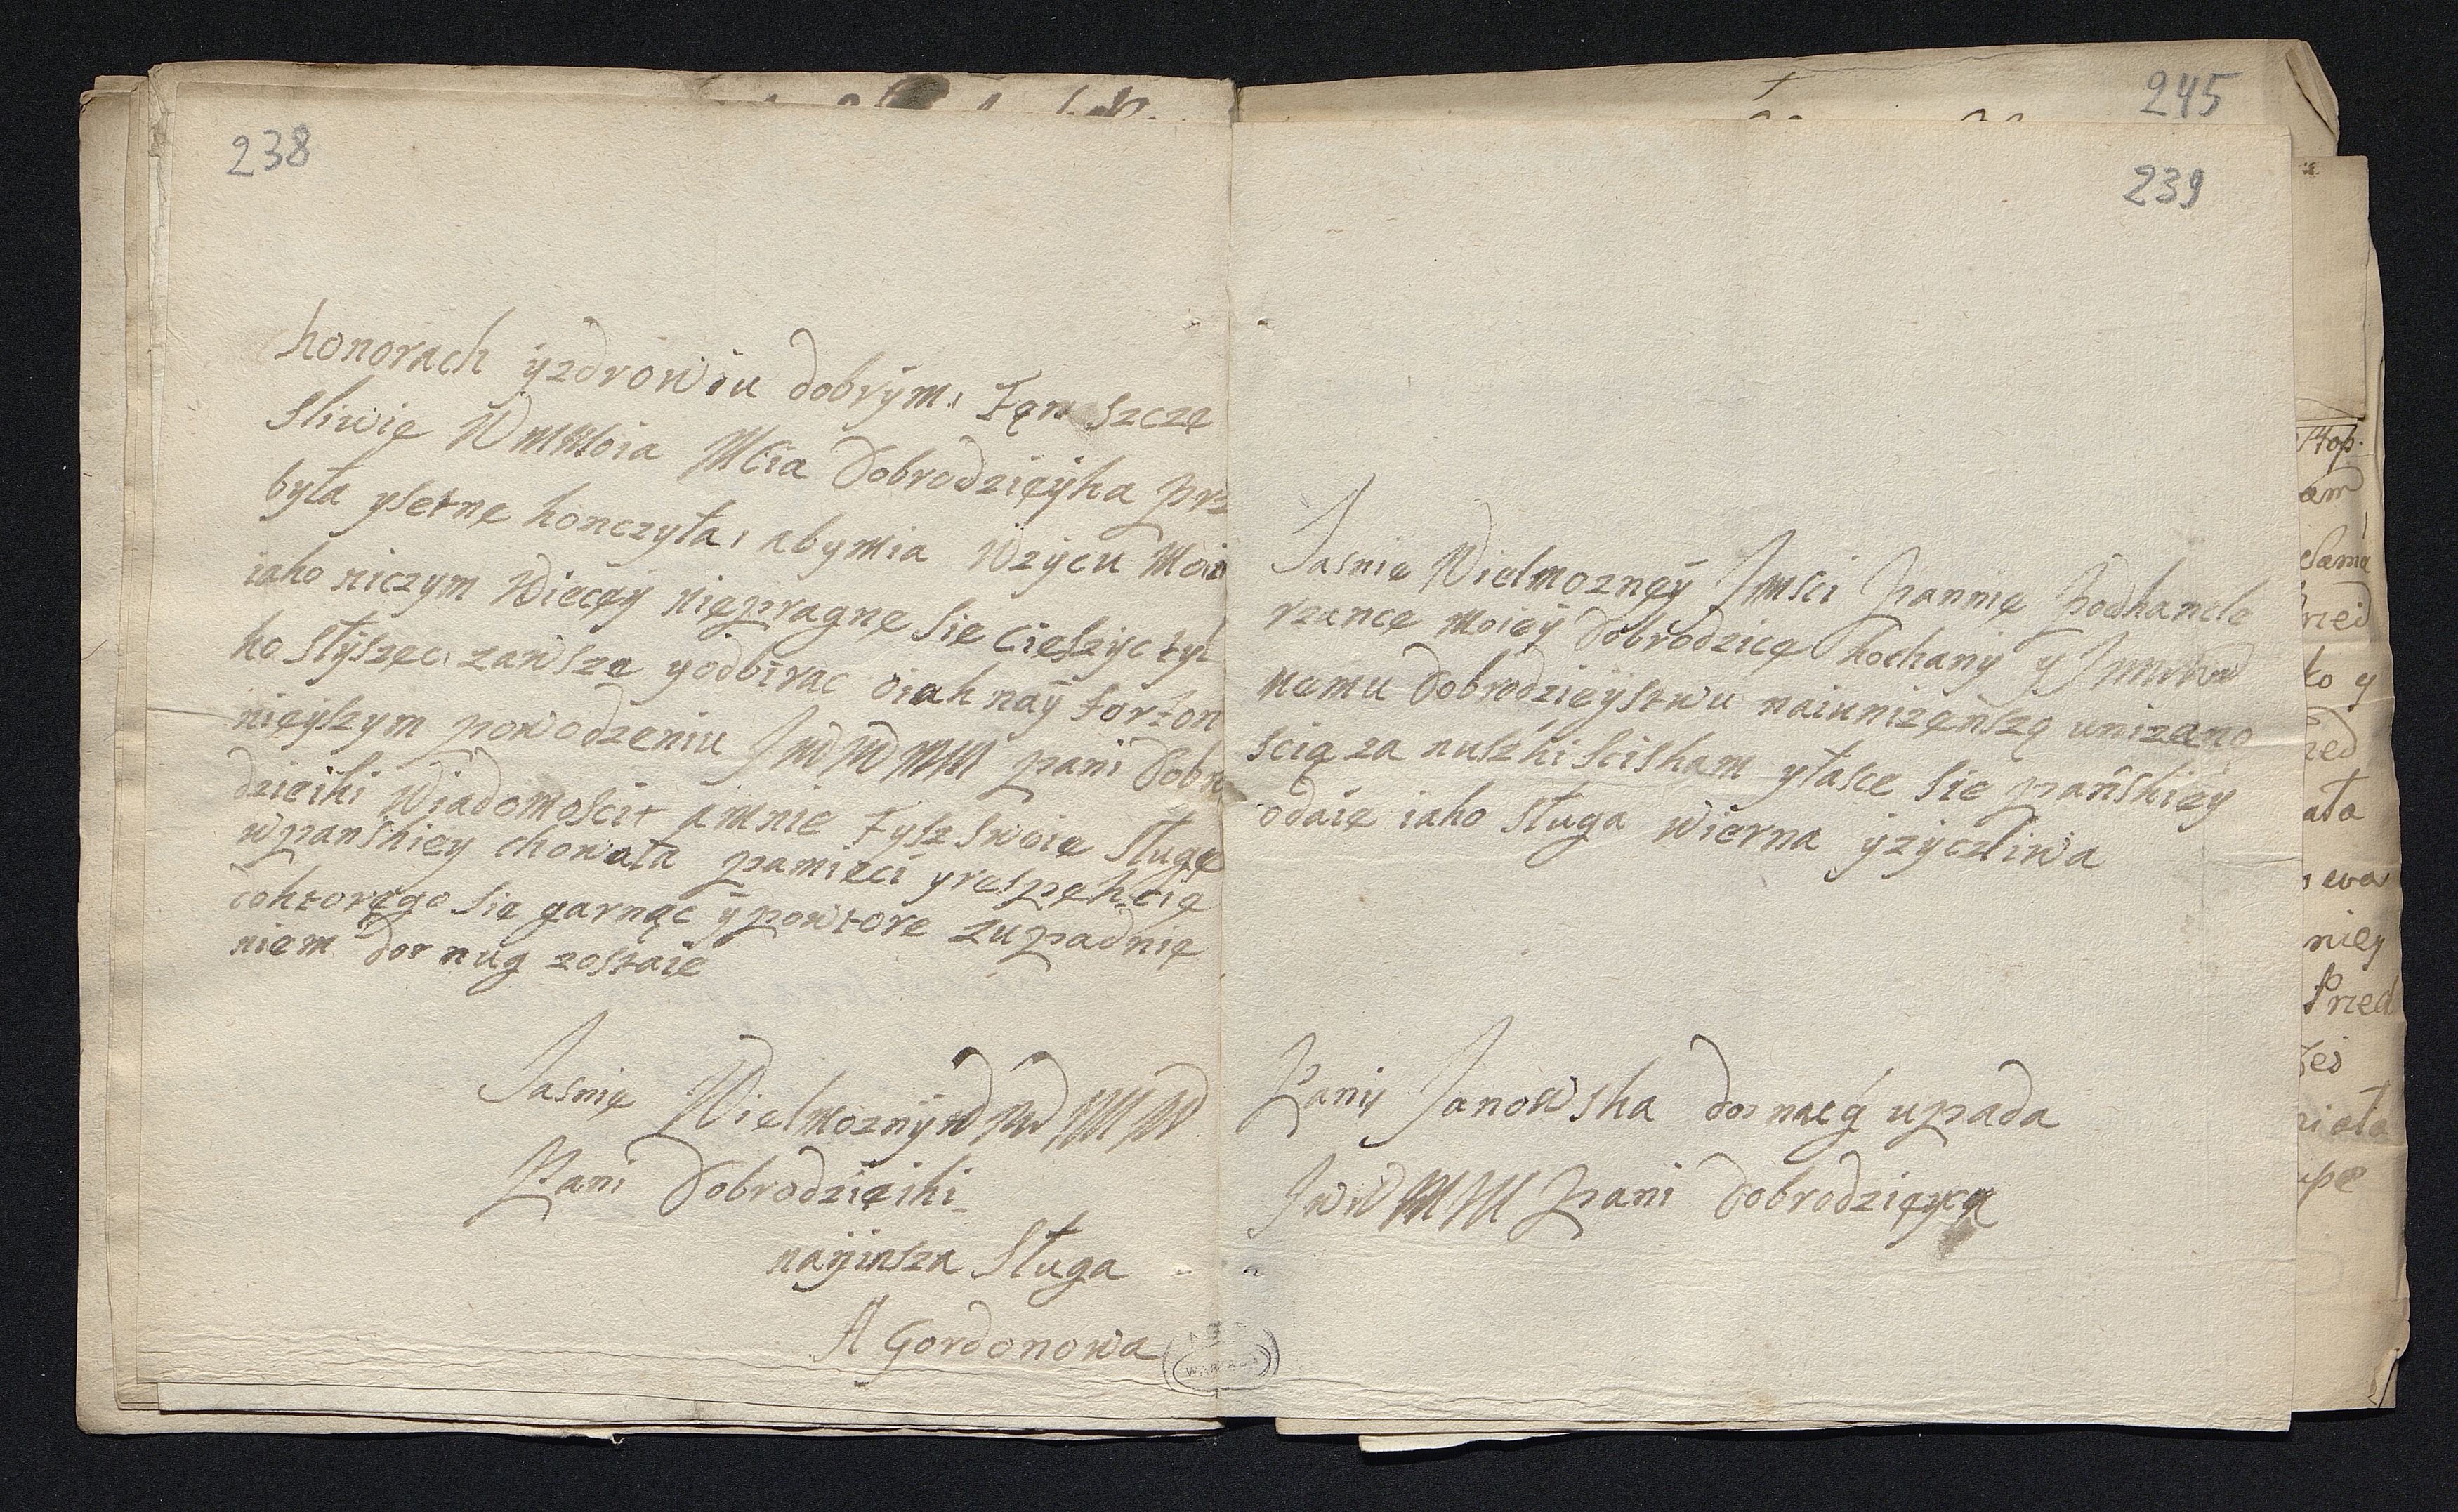 238
honorach ÿzdrowiu dobrÿm, Tęn szczę
sliwię WmMoia Mcia Dobrodzięÿka prz
była ysetnę konczyła, abymia Wzÿcu Moi
iako niczym Wiecęÿ niępragnę Się Cieszyc tyl
ko słyszęc zawszę yodbirac oiak naÿ forton
nięyszym powodzeniu JWWMM pani Dobro
dzieiki Wiadomoscit amnie tysz swoię Sługę
wpanskiey chowała pamięci yrespękcię
doktoręgo Się garnąc ÿpowtore zupadnię
niem don nug zostaię
Jasnię Wielmoznÿ WWMM
Pani Dobrodzięiki
naÿinsza Sługa
A Gordonowa
245
239
Jasnię Wielmoznęÿ Jmsci Pannię Podkanclo
rzancę moięÿ Dobrodzicę kochanÿ y
nemu Dobrodzieÿstwu naiunizęnszą unizano
scią za nuszki sciskam ył­asce Się panskięy
odaię iako Sługa wierna ÿzÿczliwa
Panÿ Janowska don nug upada
JWWMM Pani Dobrodzięycę